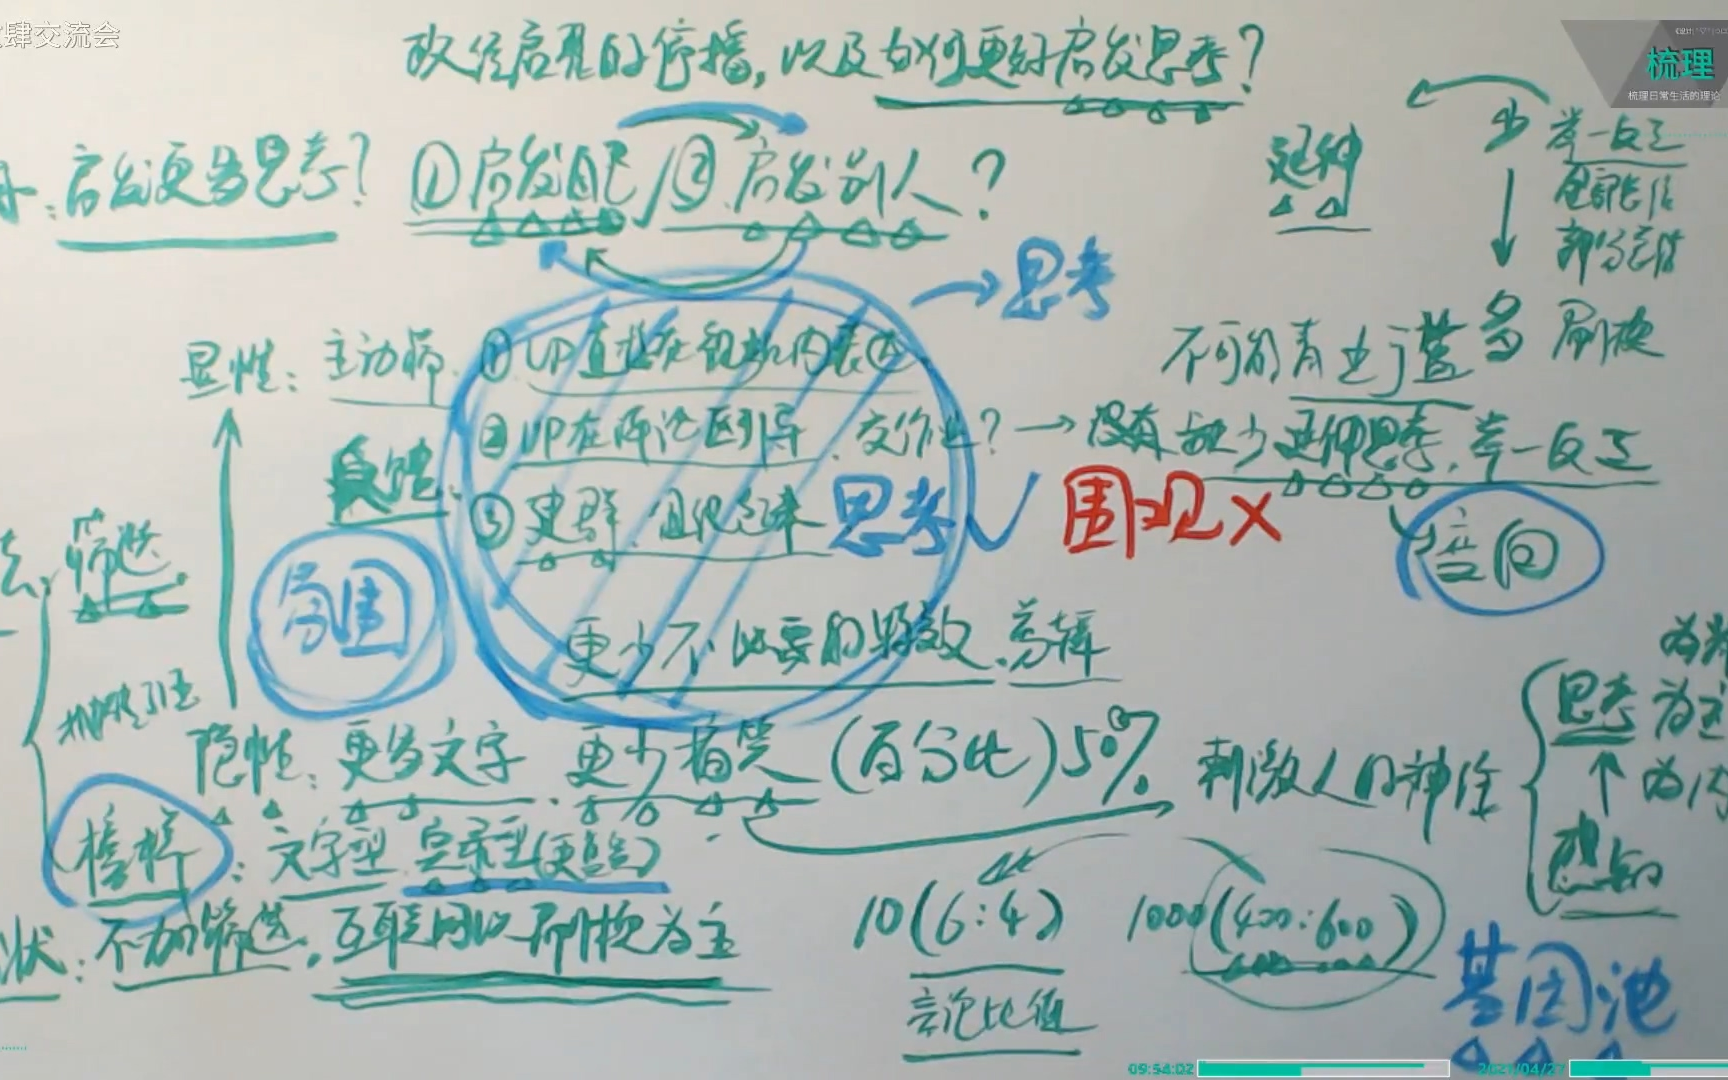 肆交流会
梳理
梳理日常生活的理论
政经启翟的停播,以及如何更好启发思考?
:启发更多思考? ①启发自己/②启发别人?
延伸
少 举一反三
部分总结
多 刷梗
→思考
显性: 主动筛. ①UP直接在视频内表达
不可能青出于蓝
反馈. ②UP在评论区引导. 交作业?→没有缺少延伸思考,举一反三
③建群. 思考✓ 围观×
空间
筛选.
氛围
更少不必要的特效.剪辑
隐性: 更多文字. 更少搞笑 (百分比)50%
刺激人的神经
思考
榜样: 文字型 实录型(更复合)
10(6:4) 1000(400:600)
状: 不加筛选. 互联网以刷梗为主
言论比值
基因池
09:54:02
2021/04/27